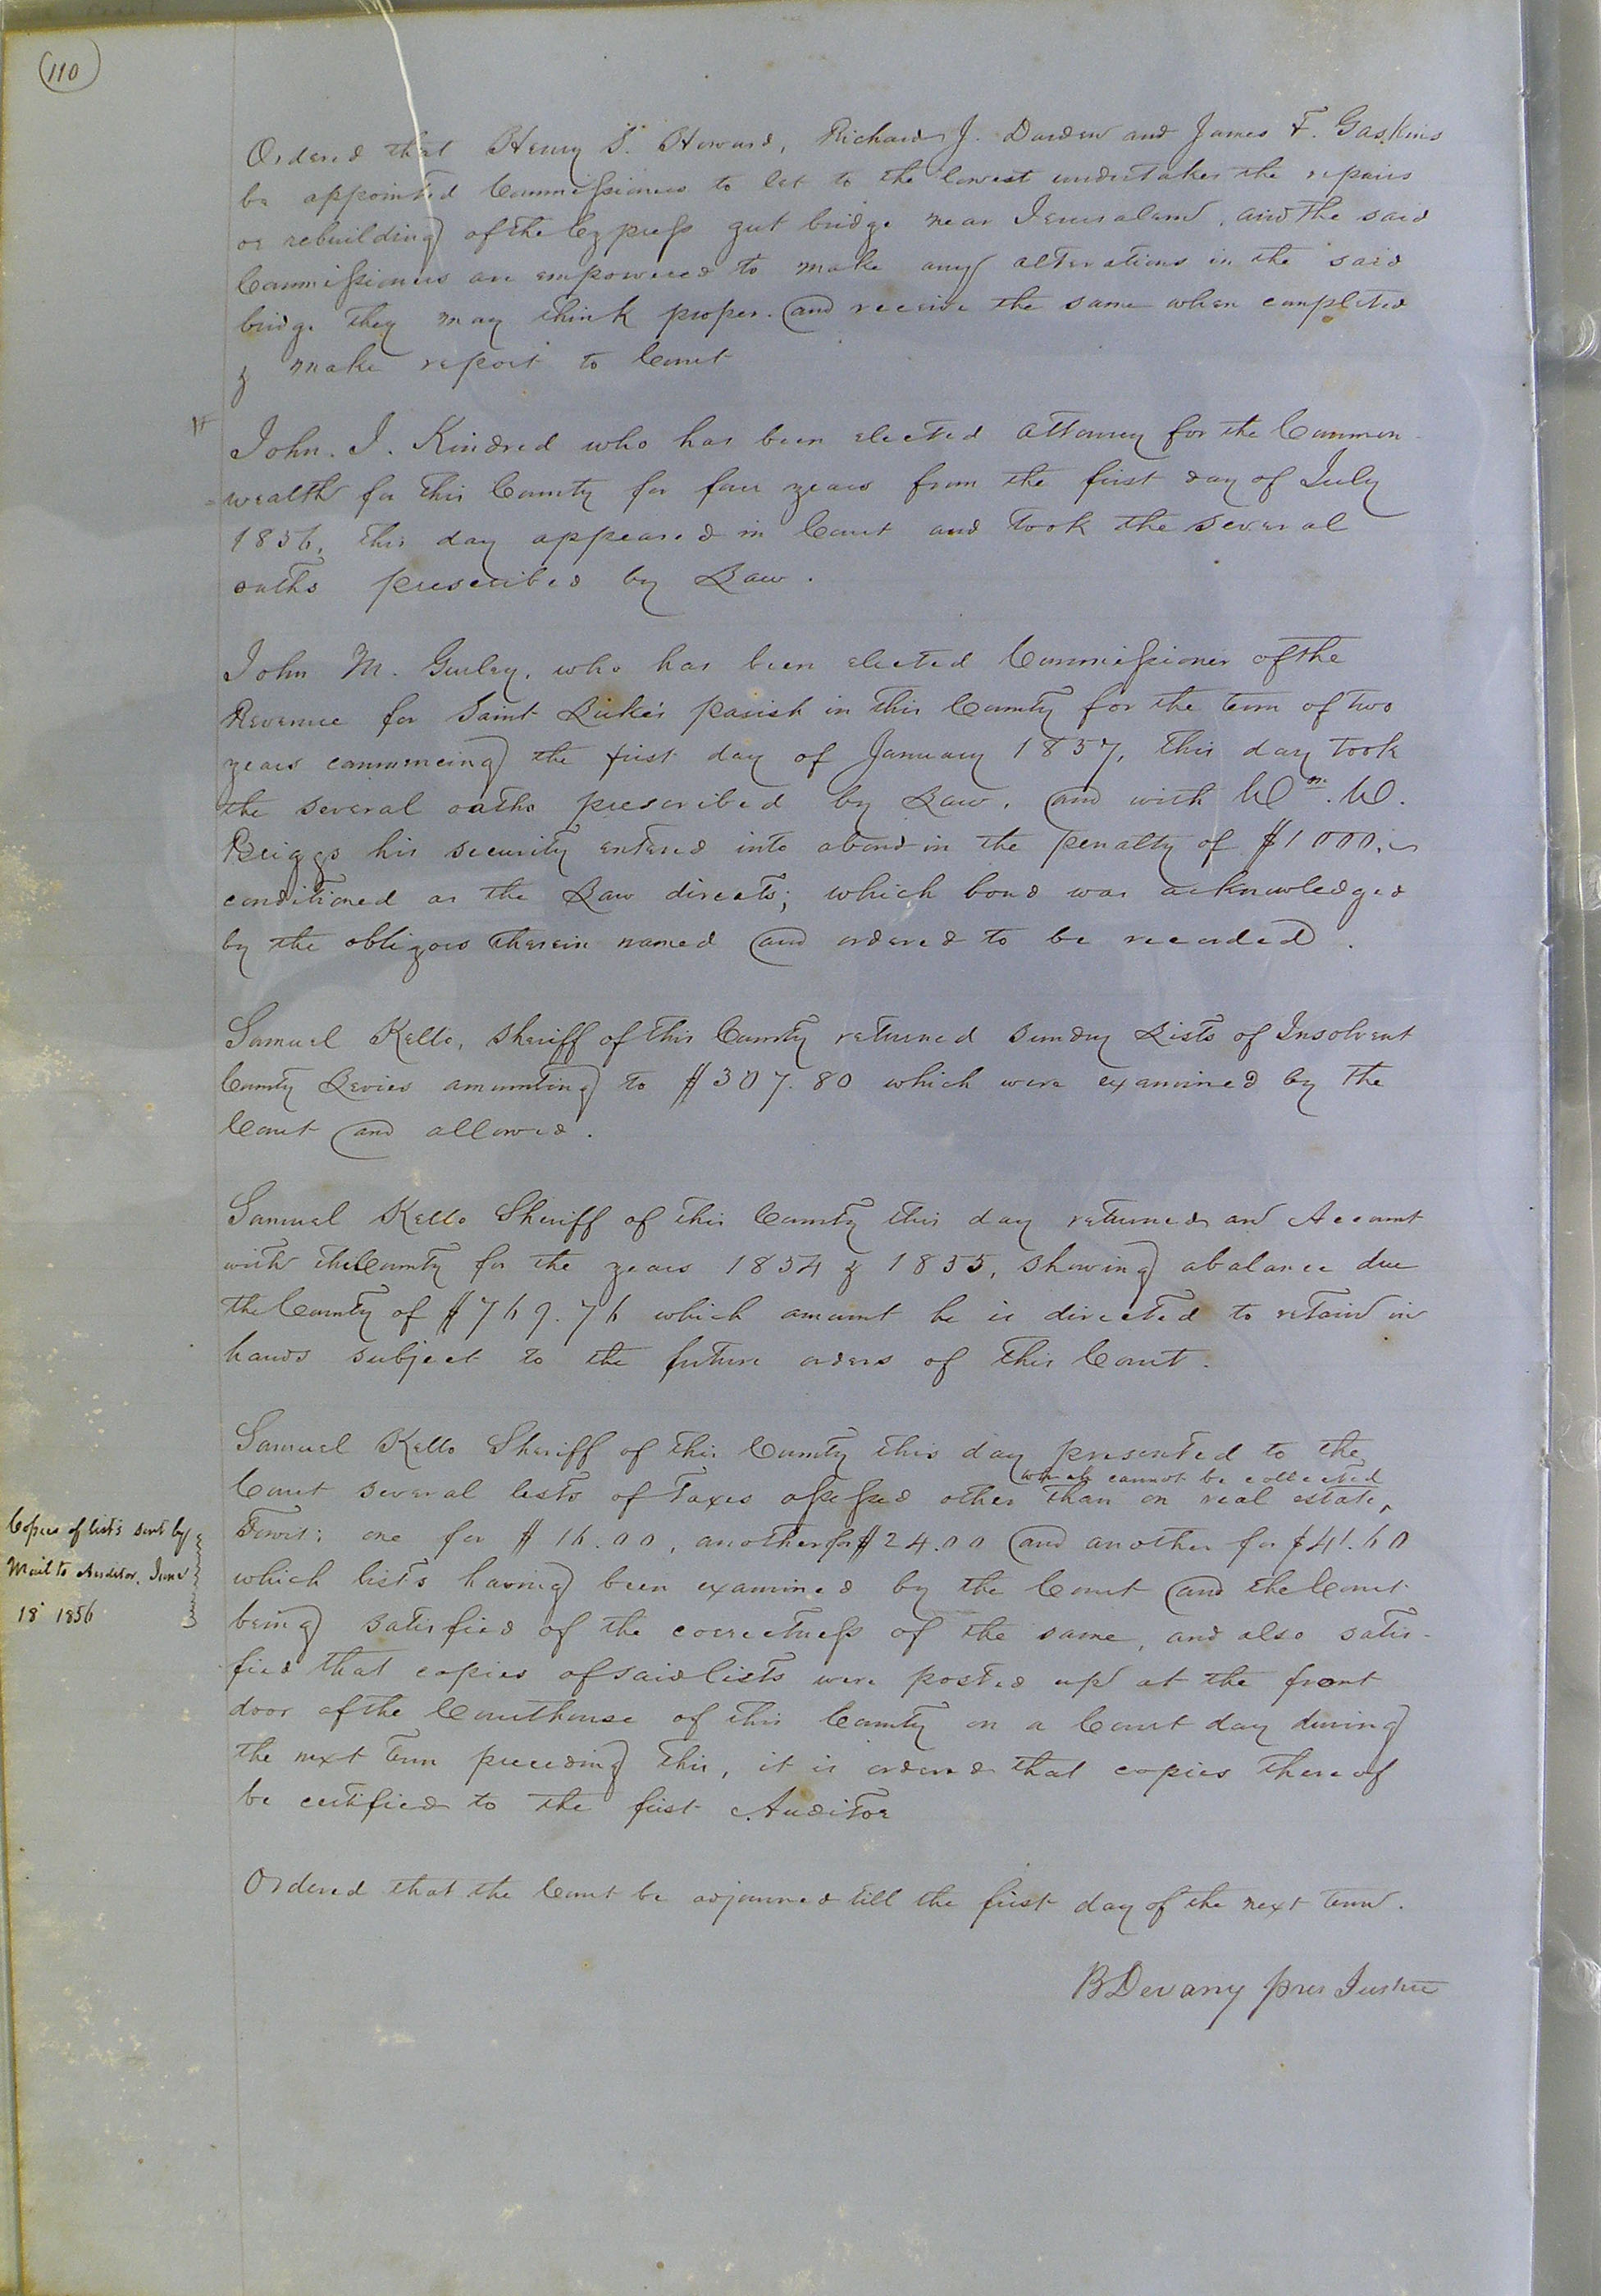 110
Ordered that Henry S. Howard, Richard J. Darden and James F. Gaskins
be appointed Commissioners to let to the lowest undertaker the repairs
or rebuilding of the Cypress gut bridge near Jerusalem, and the said
Commissioners are empowered to make any alterations in the said
bridge they may think proper. and receive the same when completed
& make report to Court
John. J. Kindred who has been elected attorney for the Common-
-wealth for this County for four years from the first day of July
1856, this day appeared in Court and took the several
oaths prescribed by Law.
John M. Gurley, who has been elected Commissioner of the
Revenue for Saint Luke's parish in this County for the term of two
years commencing the first day of January 1857, this day took
the several oaths prescribed by Law, and with Wm. W.
Briggs his security entered into a bond in the penalty of $1000.
conditioned as the Law directs; which bond was acknowledged
by the obligors therein named and ordered to be recorded.
Samuel Kello, Sheriff of this County returned sundry Lists of Insolvent
County Levies amounting to $307.80 which were examined by the
Court and allowed.
Samuel Kello Sheriff of this County this day returned an Account
with the County for the years 1854 & 1855, showing a balance due
the County of $769.76 which amount he is directed to retain in
hands subject to the future orders of this Court.
Samuel Kello Sheriff of this County this day presented to the
which cannot be collected
Court several lists of Taxes assessed other than on real estate,
Towit: one for $16.00, another for $24.00 and another for $41.60
which lists having been examined by the Court and the Court
being satisfied of the correctness of the same, and also satis-
fied that copies of said lists were posted up at the front
door of the Courthouse of this County on a Court day during
the next term preceeding this, it is ordered that copies thereof
be certified to the first Auditor
Copies of lists sent by
Mail to Auditor, June
18 1856
Ordered that the Court be adjourned till the first day of the next term.
B Devany pres Justice